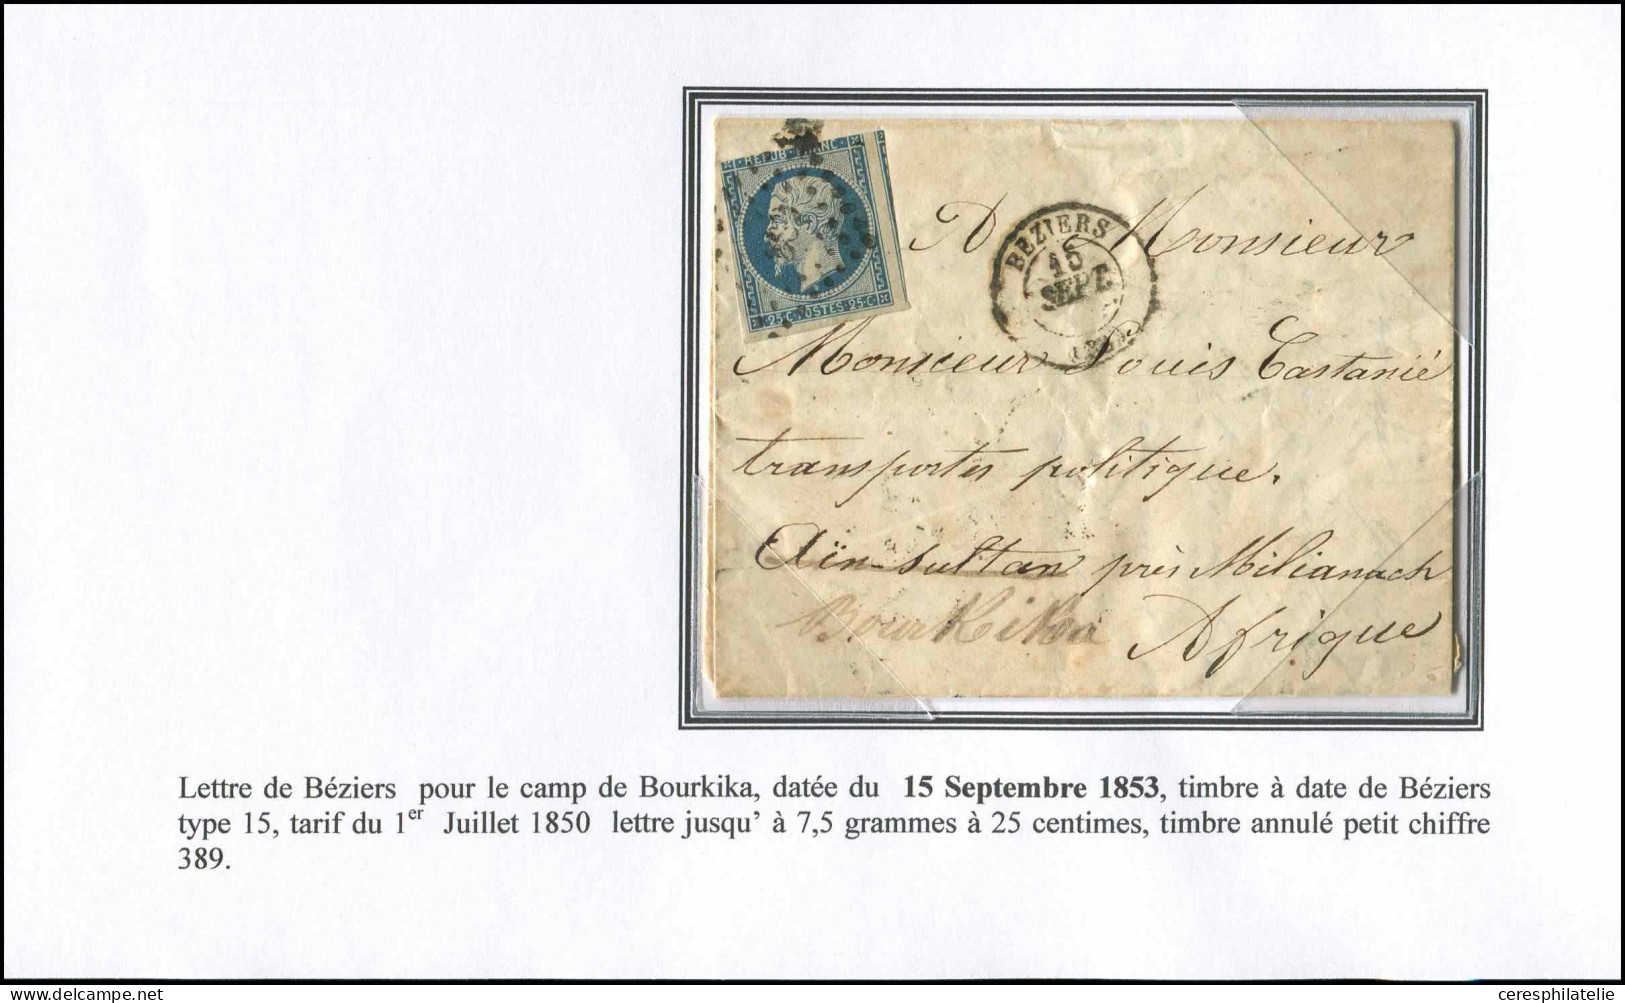 REPUB FRANC
25 C POSTES 25 C
BEZIERS
15
SEPT.
A Monsieur
Monsieur Louis Castanié
transporter politique.
Aïn-Sultan près Milianach
Bourkika Afrique
Lettre de Béziers pour le camp de Bourkika, datée du 15 Septembre 1853, timbre à date de Béziers
type 15, tarif du 1er Juillet 1850 lettre jusqu' à 7,5 grammes à 25 centimes, timbre annulé petit chiffre
389.
ceresphilatelie